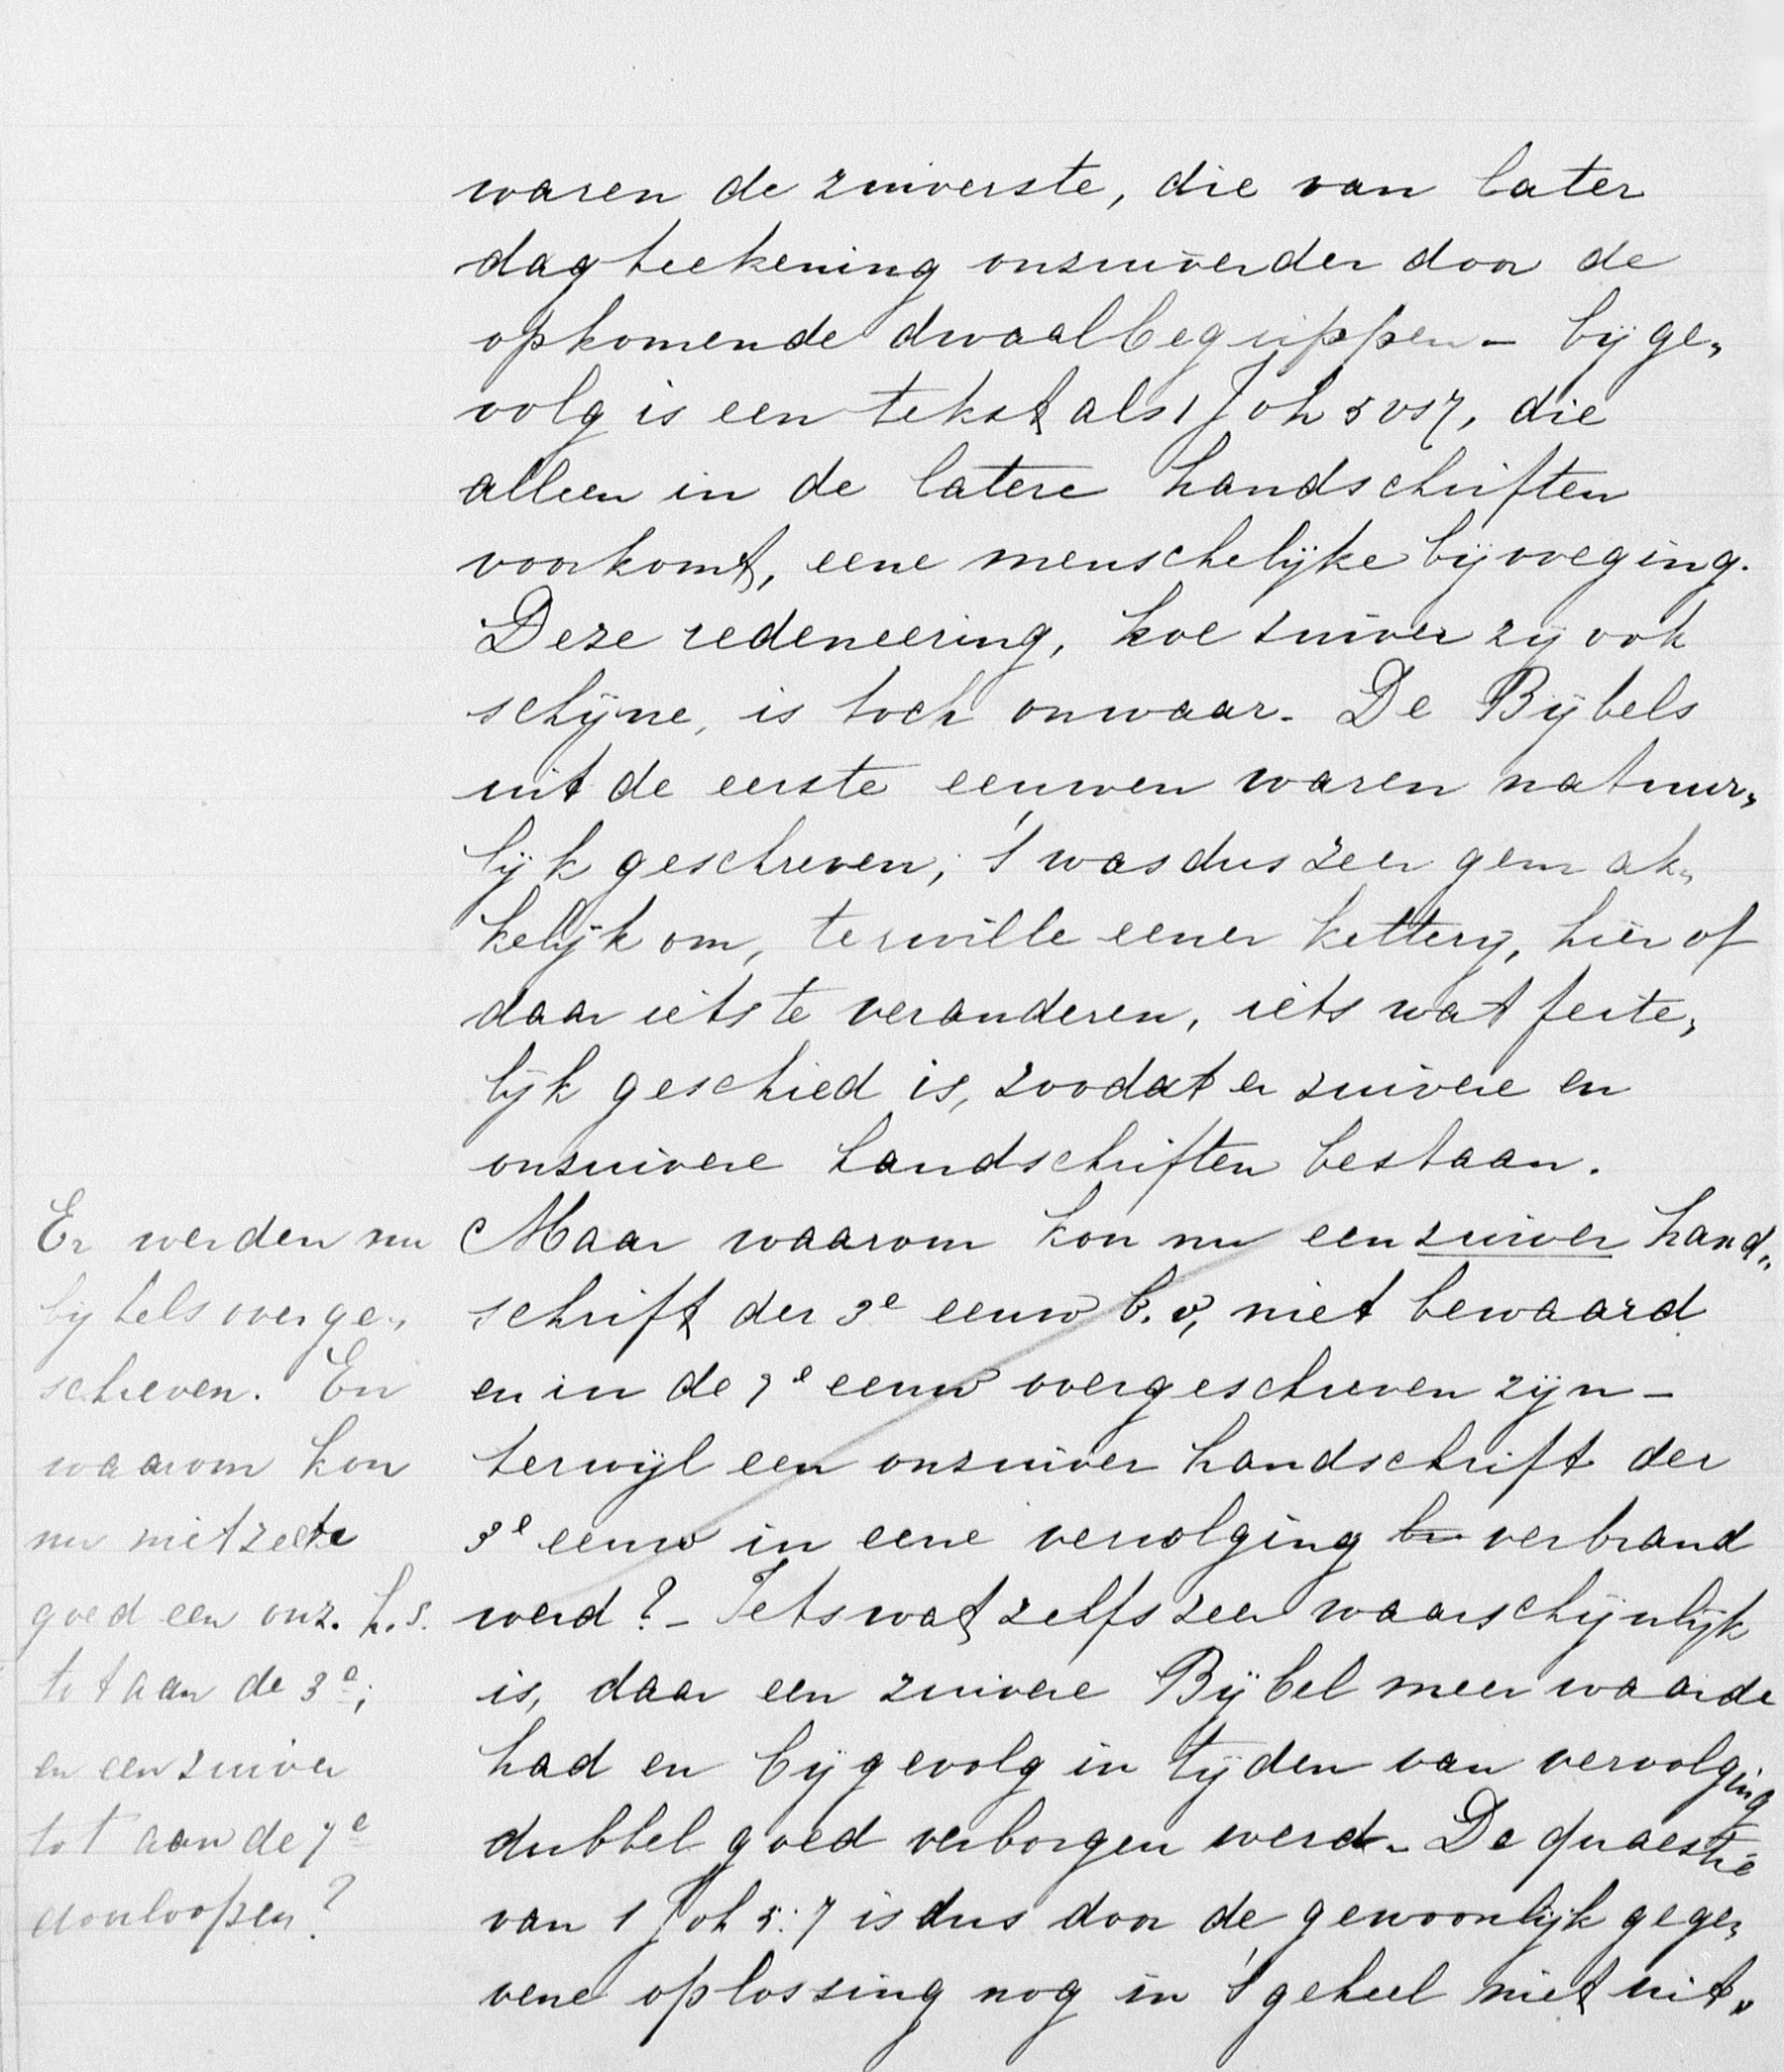 waren de zuiverste, die van later
dagteekening onzuiverder door de
opkomende dwaalbegrippen – bijge„
volg is een tekst als 1 Joh 5 vs 7, die
alleen in de latere handschriften
voorkomt, eene menschelijke bijvoeging.
Deze redeneering, hoe zuiver zij ook
schijne, is toch onwaar. De Bijbels
uit de eerste eeuwen waren natuur„
lijk geschreven, 't was dus zeer gemak„
kelijk om, ter wille eener ketterij, hier of
daar iets te veranderen, iets wat feite„
lijk geschied is, zoodat er zuivere en
onzuivere handschriften bestaan.
Maar waarom kon nu een zuiver hand„
schrift der 3e eeuw b.v, niet bewaard
en in de 7e eeuw overgeschreven zijn –
terwijl een onzuiver handschrift der
3e eeuw in eene vervolging be verbrand
werd? – Iets wat zelfs zeer waarschijnlijk
is, daar een zuivere Bijbel meer waarde
had en bijgevolg in tijden van vervolging
dubbel goed verborgen werd – De quaestie
van 1 Joh 5:7 is dus door de gewoonlijk gege„
vene oplossing nog in 't geheel niet uit„
Er werden nu
bijbels overge„
schreven. En
waarom kon
nu niet zeer
goed een onz. h.s.
tot aan de 3e;
en een zuiver
tot aan de 7e
doorloopen?